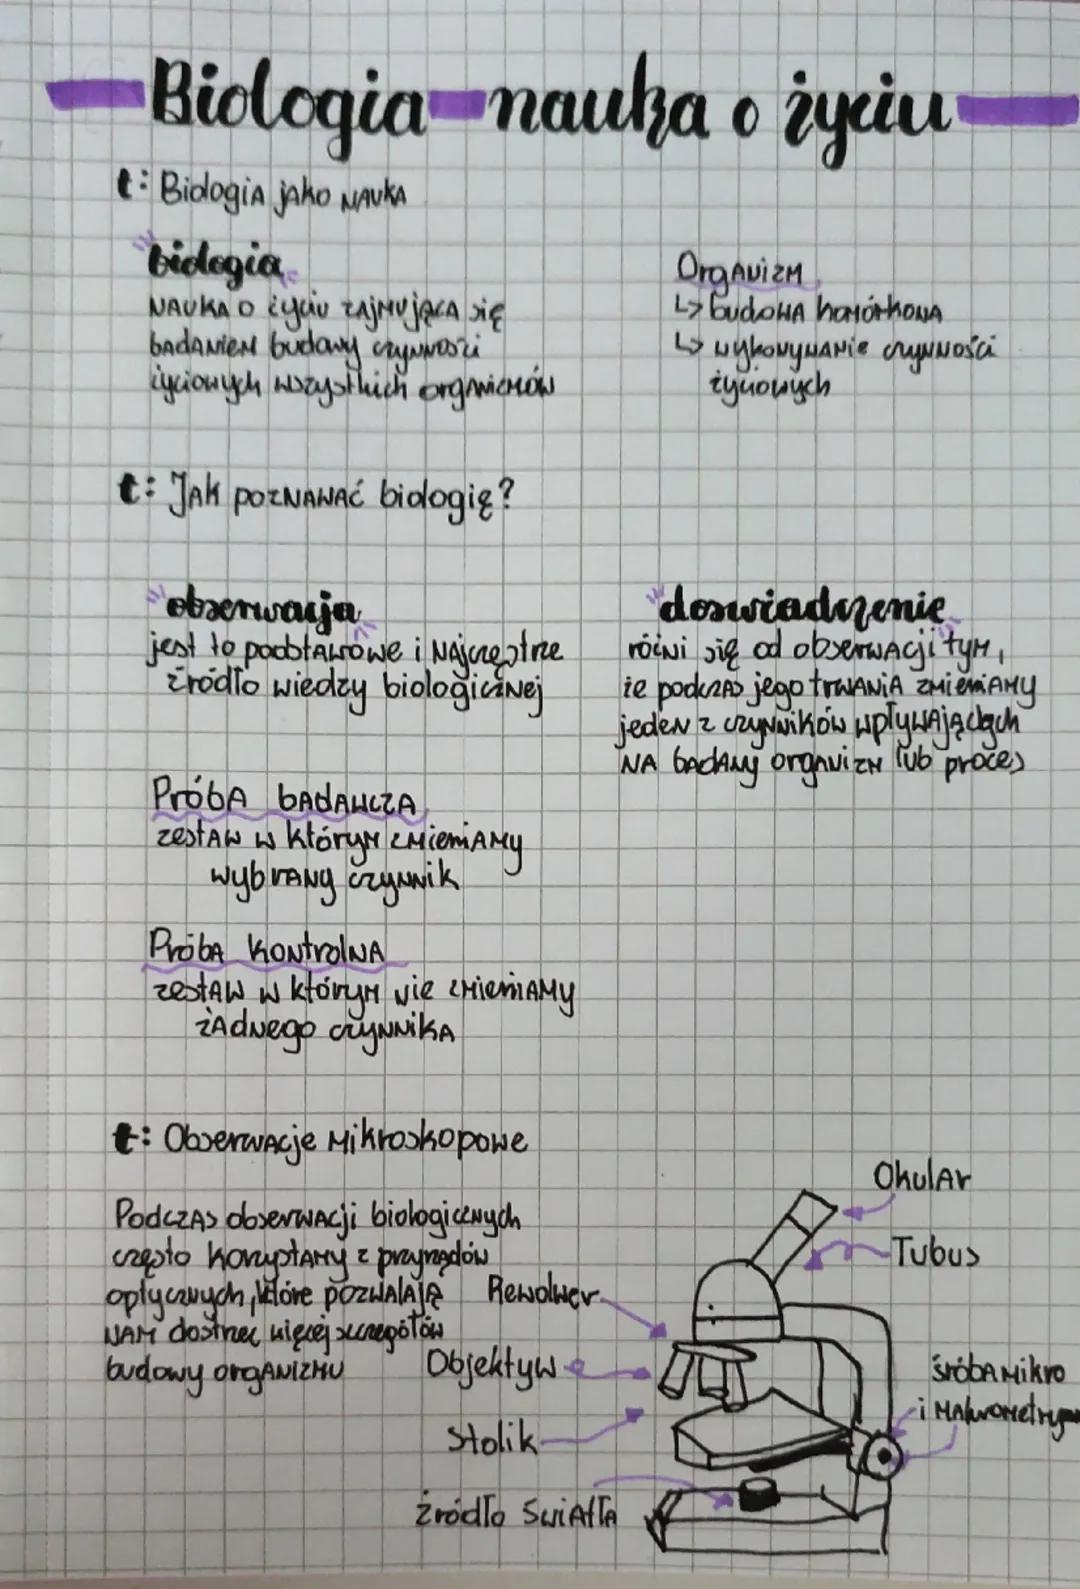 Biologia - nauka o życiu
t: Biologia jako nauka
biologia
nauka o życiu zajmująca się
badaniem budowy czynności
życiowych wszystkich organizmów
Organizm
↳ budowa komórkowa
↳ wykonywanie czynności
życiowych
t: Jak poznawać biologię?
obserwacja
jest to podstawowe i najczęstrze
źródło wiedzy biologicznej
doswiadczenie
różni się od obserwacji tym,
że podczas jego trwania zmieniamy
jeden z czynników wpływających
na badany organizm lub proces
Próba badawcza
zestaw w którym zmieniamy
wybrany czynnik
Próba kontrolna
zestaw w którym nie zmieniamy
żadnego czynnika
t: Obserwacje mikroskopowe
Podczas obserwacji biologicznych
często korzystamy z przyrządów
optycznych, które pozwalają
nam dostrzec więcej szczegółów
budowy organizmu
Okular
Tubus
Rewolwer
Objektyw
Stolik
źródło światła
śróba mikro
i makrometryczna